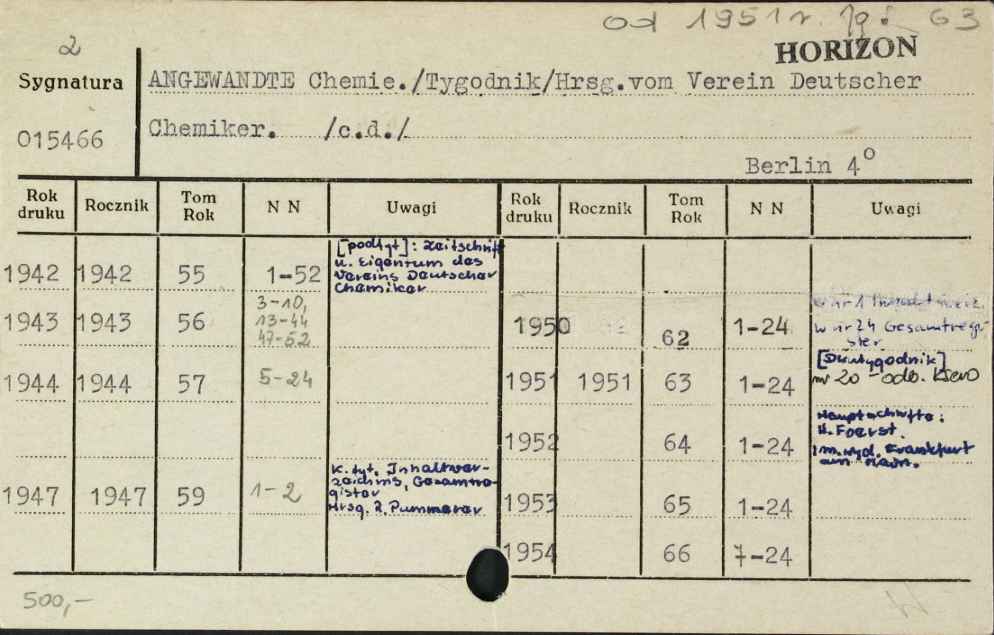 od 1951 r. 63
2
HORIZON
Sygnatura
ANGEWANDTE Chemie./Tygodnik/Hrsg.vom Verein Deutscher
015466
Chemiker. /c.d./
Berlin 4°
Rok druku Rocznik Tom Rok N N Uwagi Rok druku Rocznik Tom Rok N N Uwagi
1942 1942 55 1-52 [podtyt]: Zeitschrift
u. Eigentum des
Vereins Deutscher
Chemiker
1943 1943 56 3-10,
13-44
47-52
1950 62 1-24 w nr 1
w nr 24 Gesamtregi-
ster
1944 1944 57 5-24
1951 1951 63 1-24 [Dwutygodnik]
nr 20 - odb. ksero
1952 64 1-24 Hauptschriftl:
H. Foerst.
Im. wyd. Frankfurt
am Main.
1947 1947 59 1-2 K. tyt, Inhaltver-
zeichnis, Gesamtre-
gister
Hrsg. R. Pummerer
1953 65 1-24
1954 66 7-24
500,-